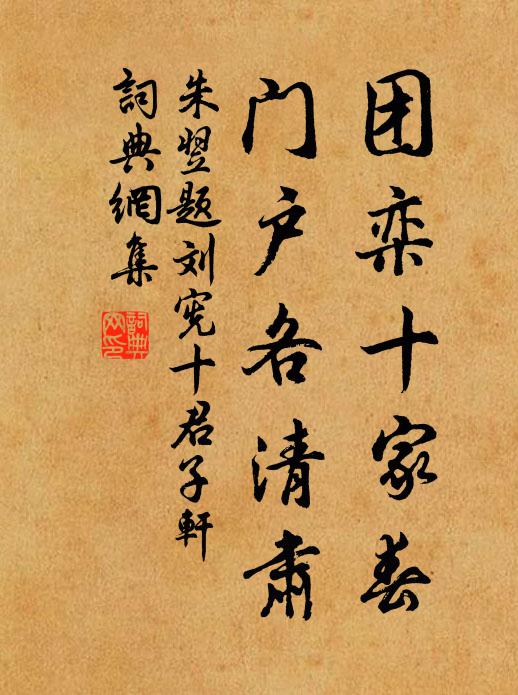 团栾十家春
门户各清肃
朱翌题刘宪十君子軒
詞典網集
詞典网印